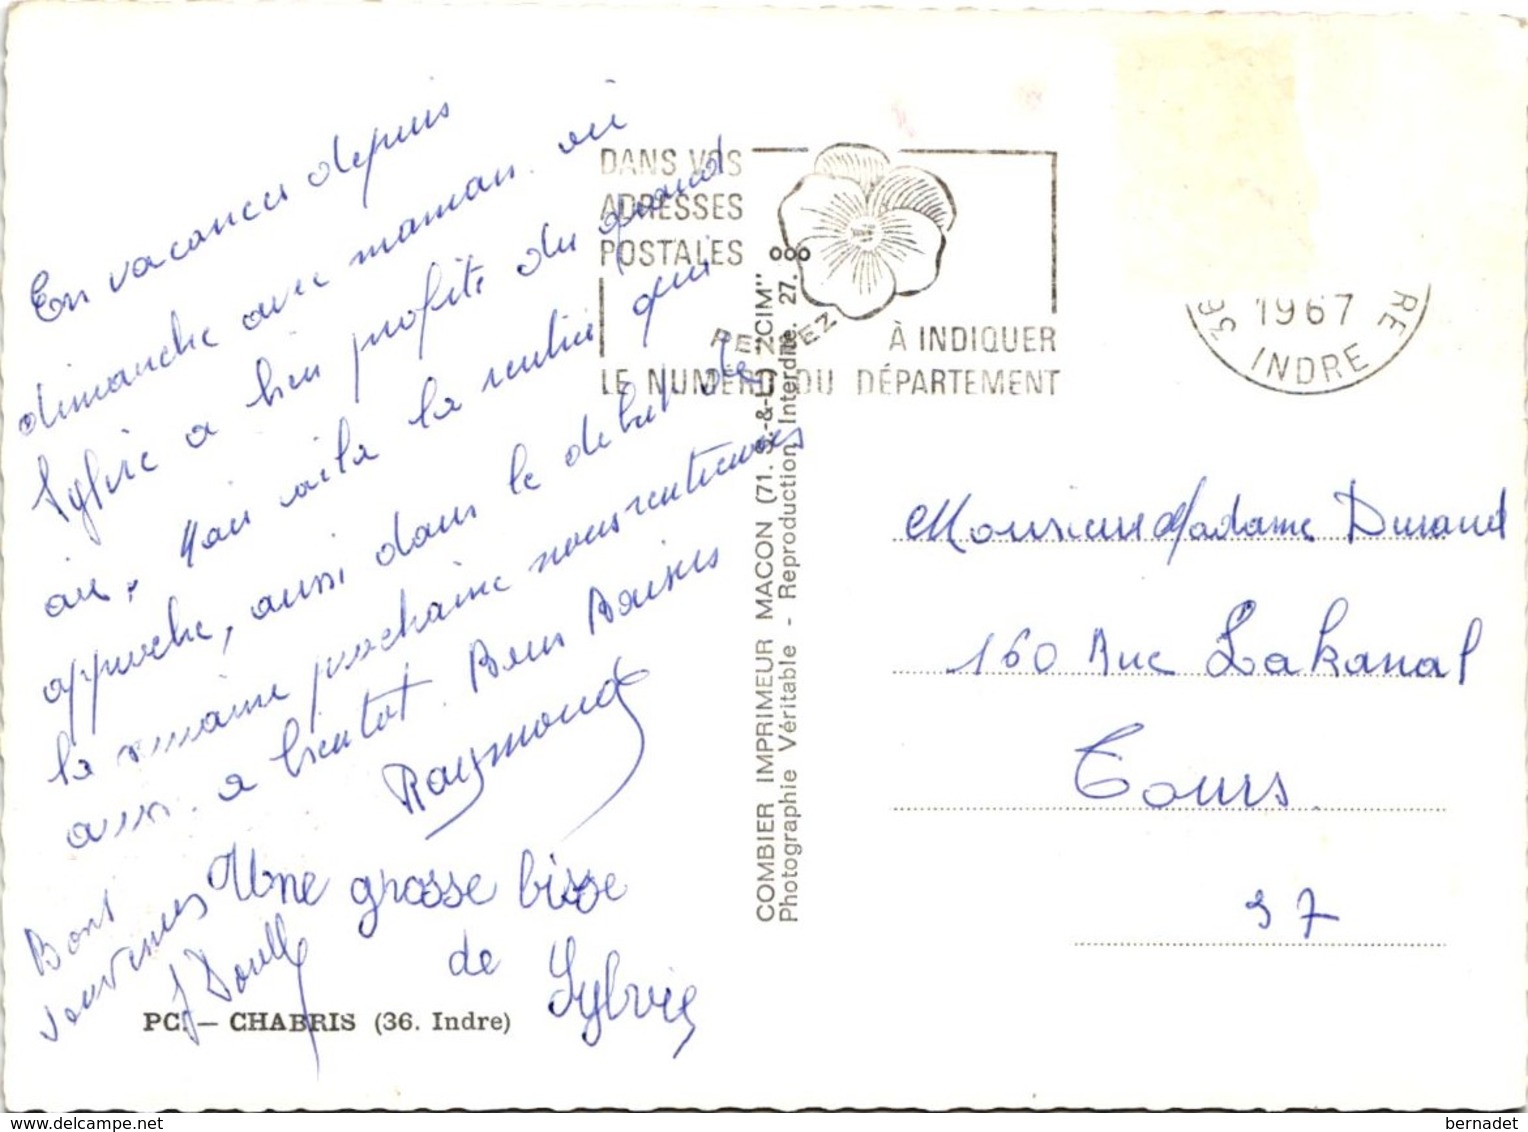 En vacances depuis
dimanche avec maman où
Sylvie a bien profité du grand
air, Mais voila la rentrée qui
approche, aussi dans le debut de
la semaine prochaine nous rentrerons
aussi. a bientot. Bons Baisers
Raymonde
Une grosse bisse
de Sylvie
Bons
souvenirs
PC. — CHABRIS (36. Indre)
DANS VOS
ADRESSES
POSTALES ...
PENSEZ À INDIQUER
LE NUMÉRO DU DÉPARTEMENT
COMBIER IMPRIMEUR MACON (71. S.-&-L.) "CIM"
Photographie Véritable - Reproduction Interdite. 27.
1967
36 INDRE RE
Monsieur Madame Durand
160 Rue Lakanal
Tours.
37
bernadet